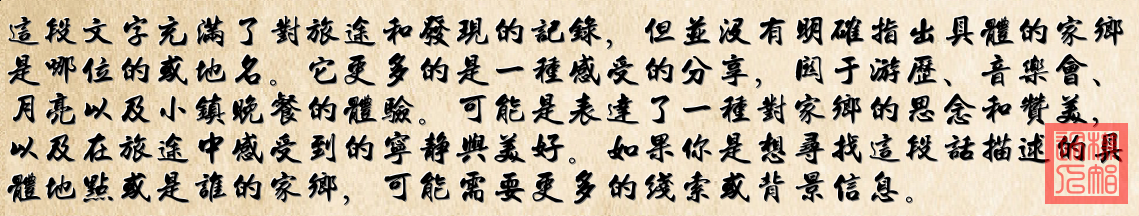 這段文字充滿了對旅途和發現的記錄，但並沒有明確指出具體的家鄉
是哪位的或地名。它更多的是一種感受的分享，關于游歷、音樂會、
月亮以及小鎮晚餐的體驗。可能是表達了一種對家鄉的思念和贊美，
以及在旅途中感受到的寧靜與美好。如果你是想尋找這段話描述的具
體地點或是誰的家鄉，可能需要更多的綫索或背景信息。